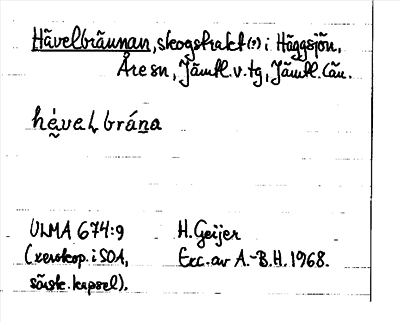 Hävelbräunan, skogstrakt(?) i Häggsjön,
Åre sn, Jämtl. v. tg, Jämtl. län.
hė̬vəl brána
ULMA 674:9 H. Geijer
(xeroskop. i SOA, Exc. av A.-B.H. 1968.
särsk. kapsel).